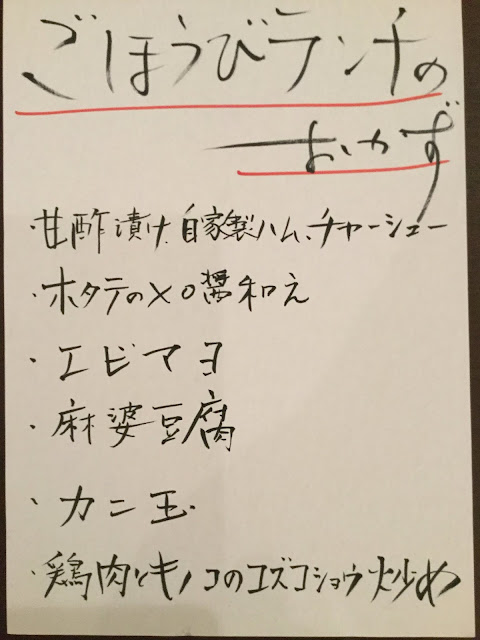 ごほうびランチの
おかず
・甘酢漬け、自家製ハム、チャーシュー
・ホタテのXO醤和え
・エビマヨ
・麻婆豆腐
・カニ玉
・鶏肉とキノコのユズコショウ炒め